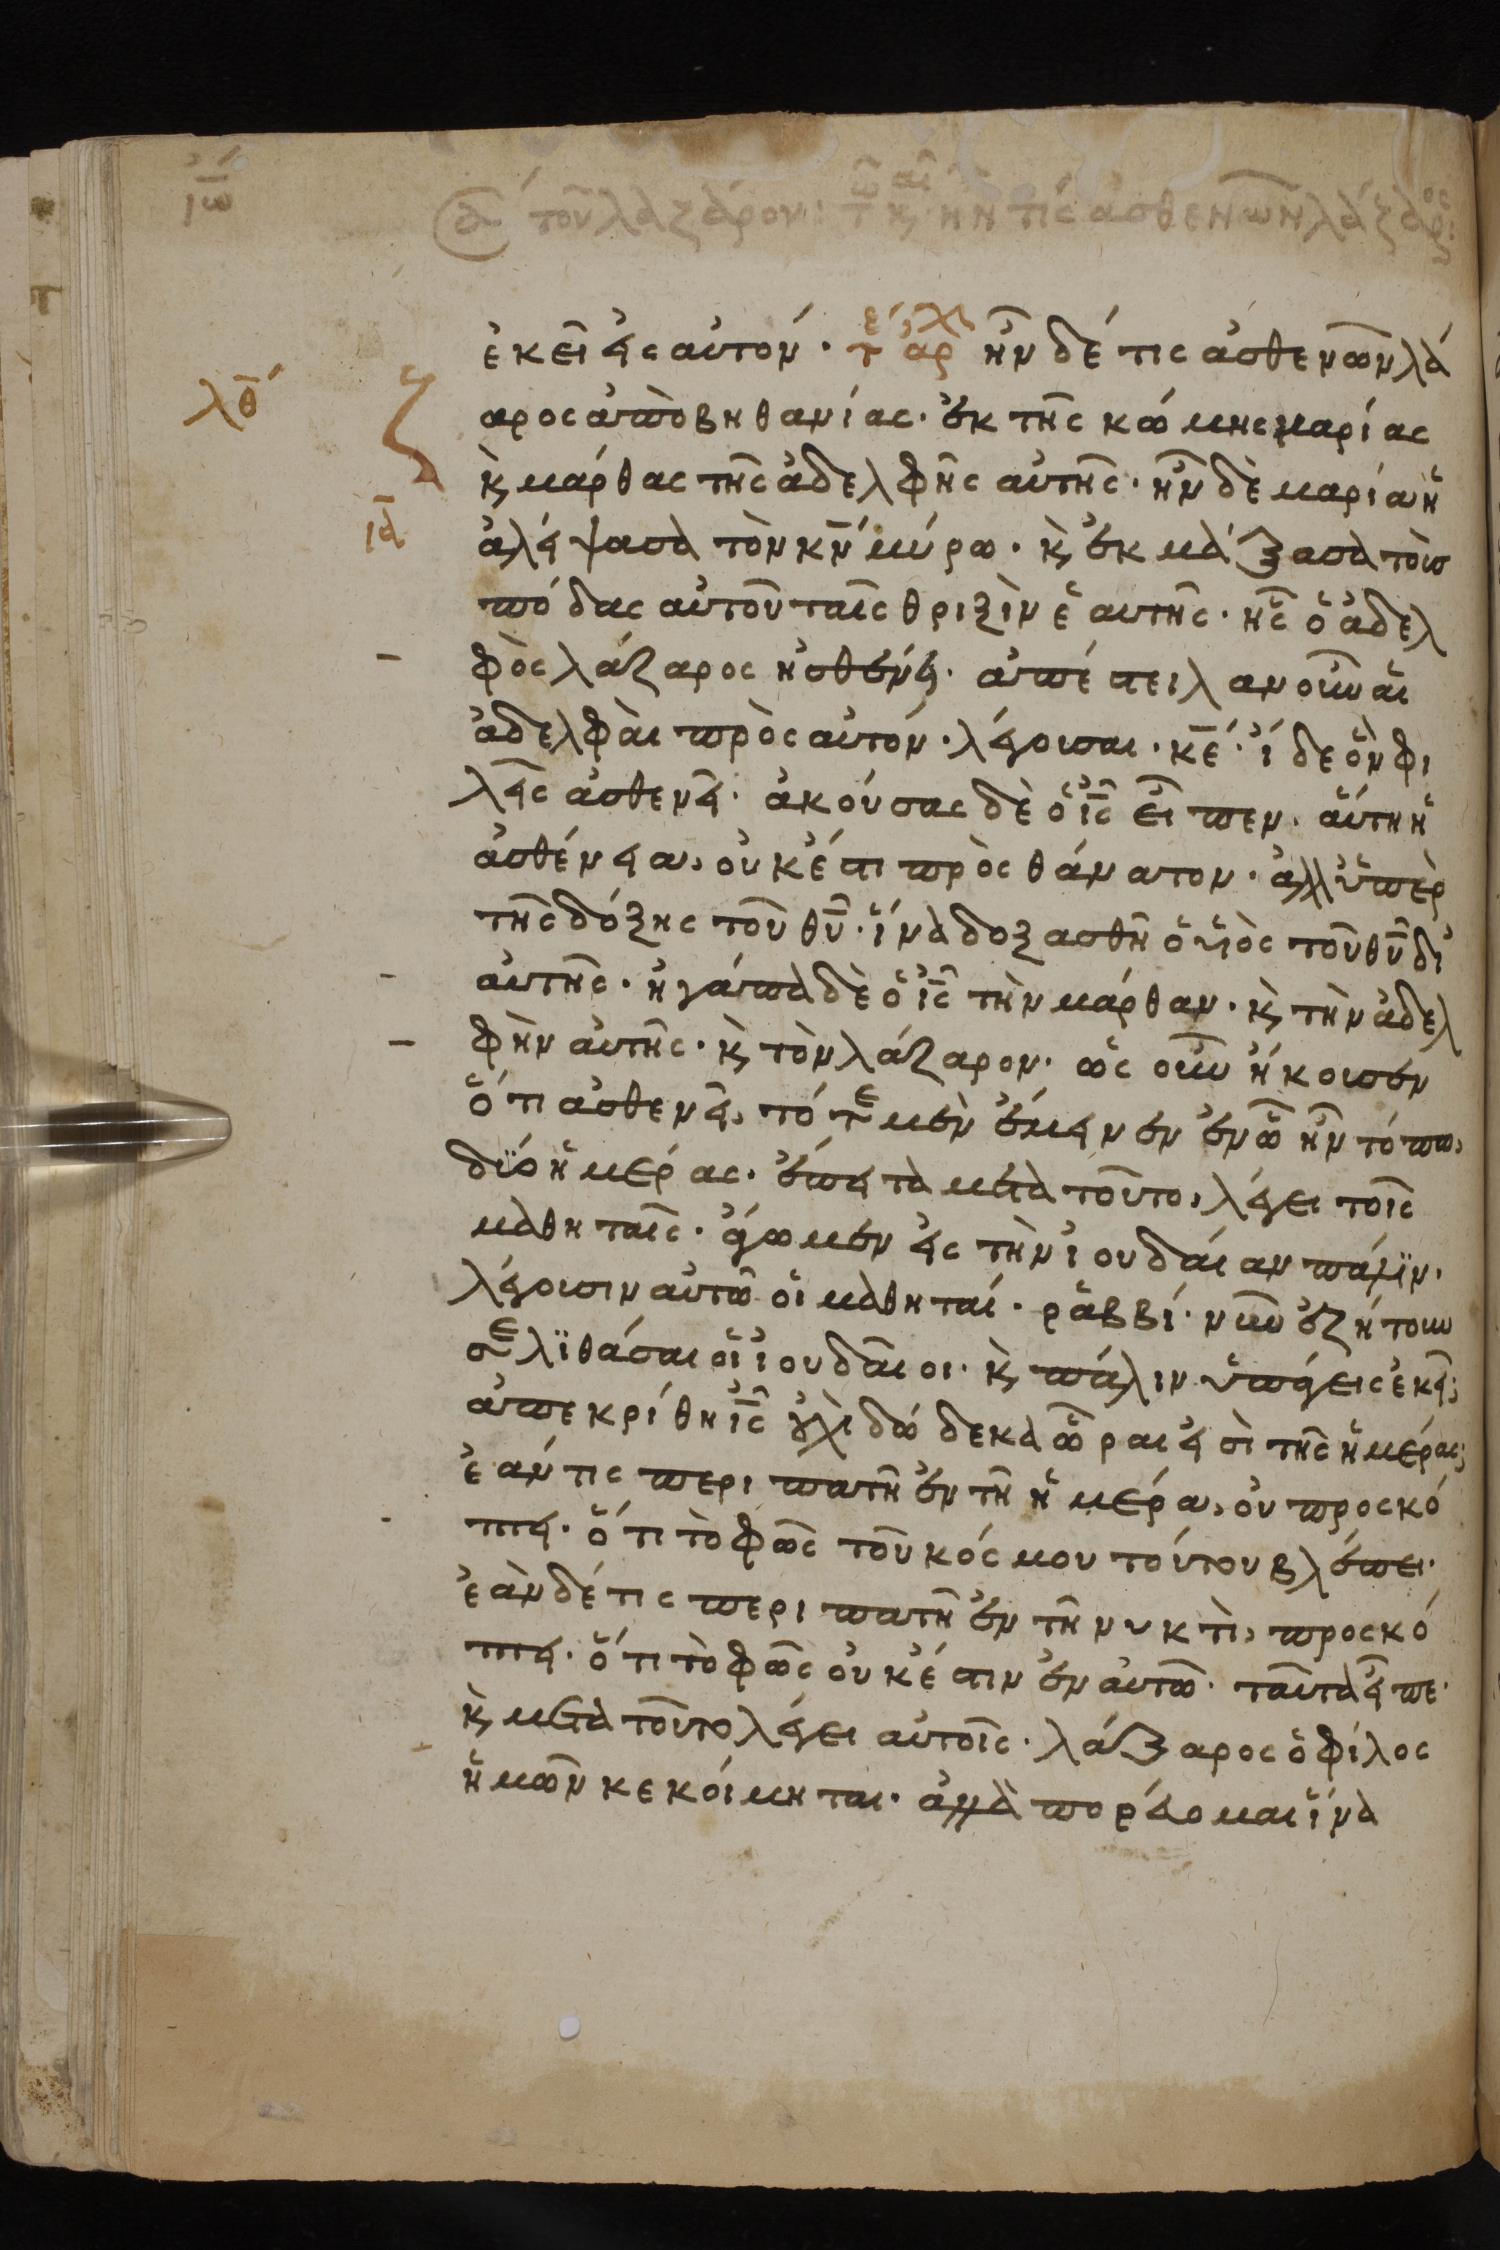 ἰω
σα τοῦ λαζάρου: τῶ και ἦν τίς ἀσθενῶν λάζαρος:
ἐκεῖ εἰς αὐτόν · τε αρχ ἦν δέ τις ἀσθενῶν λά
λθ ζ αρος ἀπὸ βηθανίας · ἐκ τῆς κώμης μαρίας
κ μάρθας τῆς ἀδελφῆς αὐτῆς · ἦν δὲ μαρία ἡ
ια ἀλείψασα τὸν κν μύρω · κ ἐκμάξασα τοὺσ
πόδας αὐτοῦ ταῖς θριξὶν ἑαυτῆς · ἧς ὁ ἀδελ
φὸς λάζαρος ἠσθένει · ἀπέστειλαν οὖν αἱ
ἀδελφαὶ πρὸς αὐτόν · λέγουσαι · κε · ἴδε ὃν φι
λεῖς ἀσθενεῖ · ἀκούσας δὲ ὁ ις εἶπεν · αὕτη ἡ
ἀσθένεια, οὐκ έστι πρὸς θάνατον · ἀλλ ὑπὲρ
τῆς δόξης τοῦ θυ · ἵνα δοξασθῆ ὁ υἱὸς τοῦ θυ δι
αὐτῆς · ἠγάπα δὲ ὁ ις τὴν μάρθαν · κ τὴν ἀδελ
φὴν αὐτῆς · κ τὸν λάζαρον · ὡς οὖν ἤκουσεν
ὅτι ἀσθενεῖ, τότε μὲν ἔμεινεν ἐν ᾧ ἦν τόπω,
δύο ἡμέρας · ἔπειτα μετὰ τοῦτο, λέγει τοῖς
μαθηταῖς · ἄγωμεν εἰς τὴν ἰουδαίαν πάλϊν ·
λέγουσιν αὐτῶ οἱ μαθηταί · ραββί · νῦν ἐζήτουν
σε λϊθάσαι οἱ ἰουδαῖοι · κ πάλιν ὑπάγεις ἐκεῖ;
ἀπεκρίθη ις οὐχὶ δώδεκα ὧραι εἰσὶ τῆς ἡμέρας;
ἐάν τις περιπατῆ ἐν τῆ ἡμέρα, οὐ προσκό
πτει · ὅτι τὸ φῶς τοῦ κόσμου τούτου βλέπει ·
ἐὰν δέ τις περιπατῆ ἐν τῆ νυκτὶ, προσκό
πτει · ὅτι τὸ φῶς οὐκ έστιν ἐν αὐτῶ · ταῦτα εἶπε ·
κ μετὰ τοῦτο λέγει αὐτοῖς · λάζαρος ὁ φίλος
ἡμῶν κεκοίμηται · ἀλλὰ πορεύομαι ἵνα